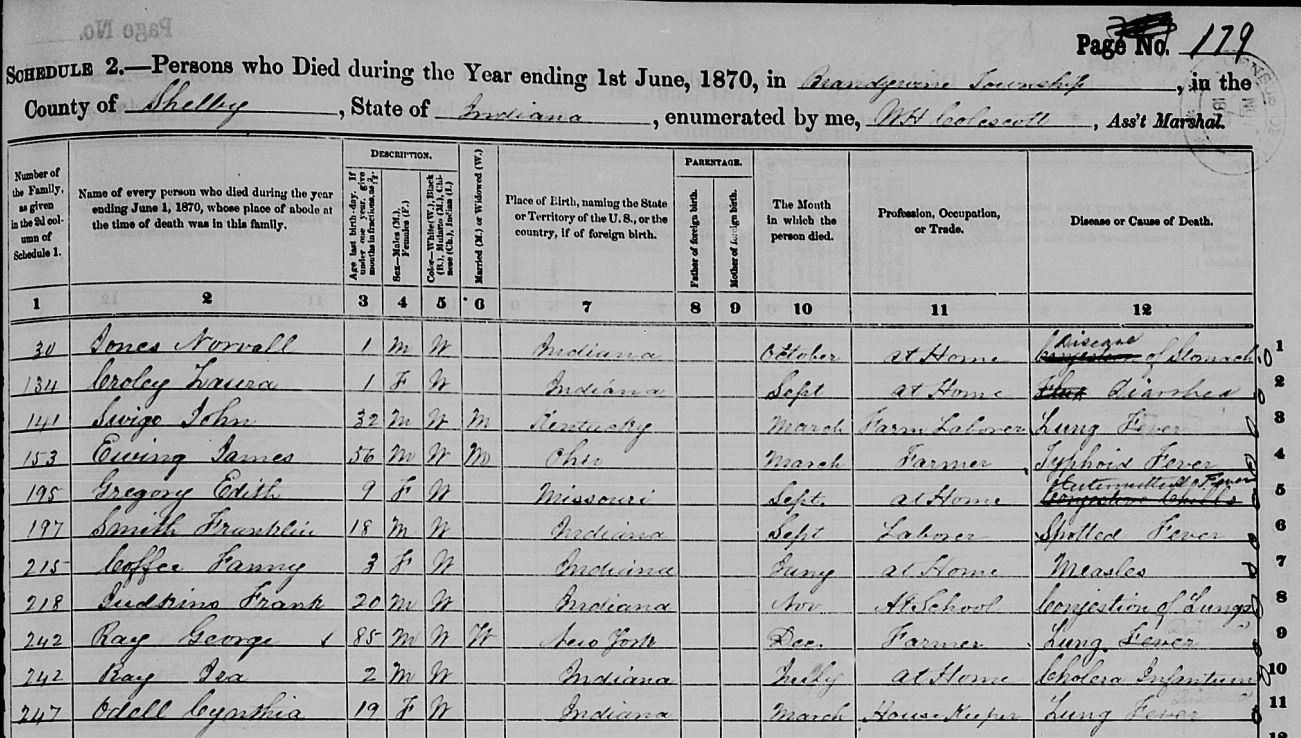 Page No. 179
SCHEDULE 2.—Persons who Died during the Year ending 1st June, 1870, in Brandywine Township, in the
County of Shelby, State of Indiana, enumerated by me, WH Colescott, Ass't Marshal.
Number of the Family, as given in the 2d column of Schedule 1.
Name of every person who died during the year ending June 1, 1870, whose place of abode at the time of death was in this family.
DESCRIPTION.
Age last birth-day. If under one year, give months in fractions, as
Sex—Males (M.), Females (F.)
Color—White (W.), Black (B.), Mulatto (M.), Chinese (Ch.), Indian (I.)
Married (M.) or Widowed (W.)
Place of Birth, naming the State or Territory of the U. S., or the country, if of foreign birth.
PARENTAGE.
Father of foreign birth.
Mother of foreign birth.
The Month in which the person died.
Profession, Occupation, or Trade.
Disease or Cause of Death.
1 2 3 4 5 6 7 8 9 10 11 12
30 Jones Norvall 1 M W Indiana October at Home Disease of Stomach 1
134 Croley Laura 1 F W Indiana Sept at Home Diarrhea 2
141 Swigo John 32 M W M Kentucky March Farm Laborer Lung Fever 3
153 Ewing James 56 M W M Ohio March Farmer Typhoid Fever 4
195 Gregory Edith 9 F W Missouri Sept. at Home Intermittent Fever Congestive Chills 5
197 Smith Franklin 18 M W Indiana Sept Laborer Spotted Fever 6
215 Coffee Fanny 3 F W Indiana at Home Measles 7
218 Judkins Frank 20 M W Indiana Nov At School Congestion of Lungs 8
242 Ray George 85 M W W New York Dec. Farmer Lung Fever 9
242 Ray Ira 2 M W Indiana July at Home Cholera Infantum 10
247 Odell Cynthia 19 F W Indiana March House Keeper Lung Fever 11
12